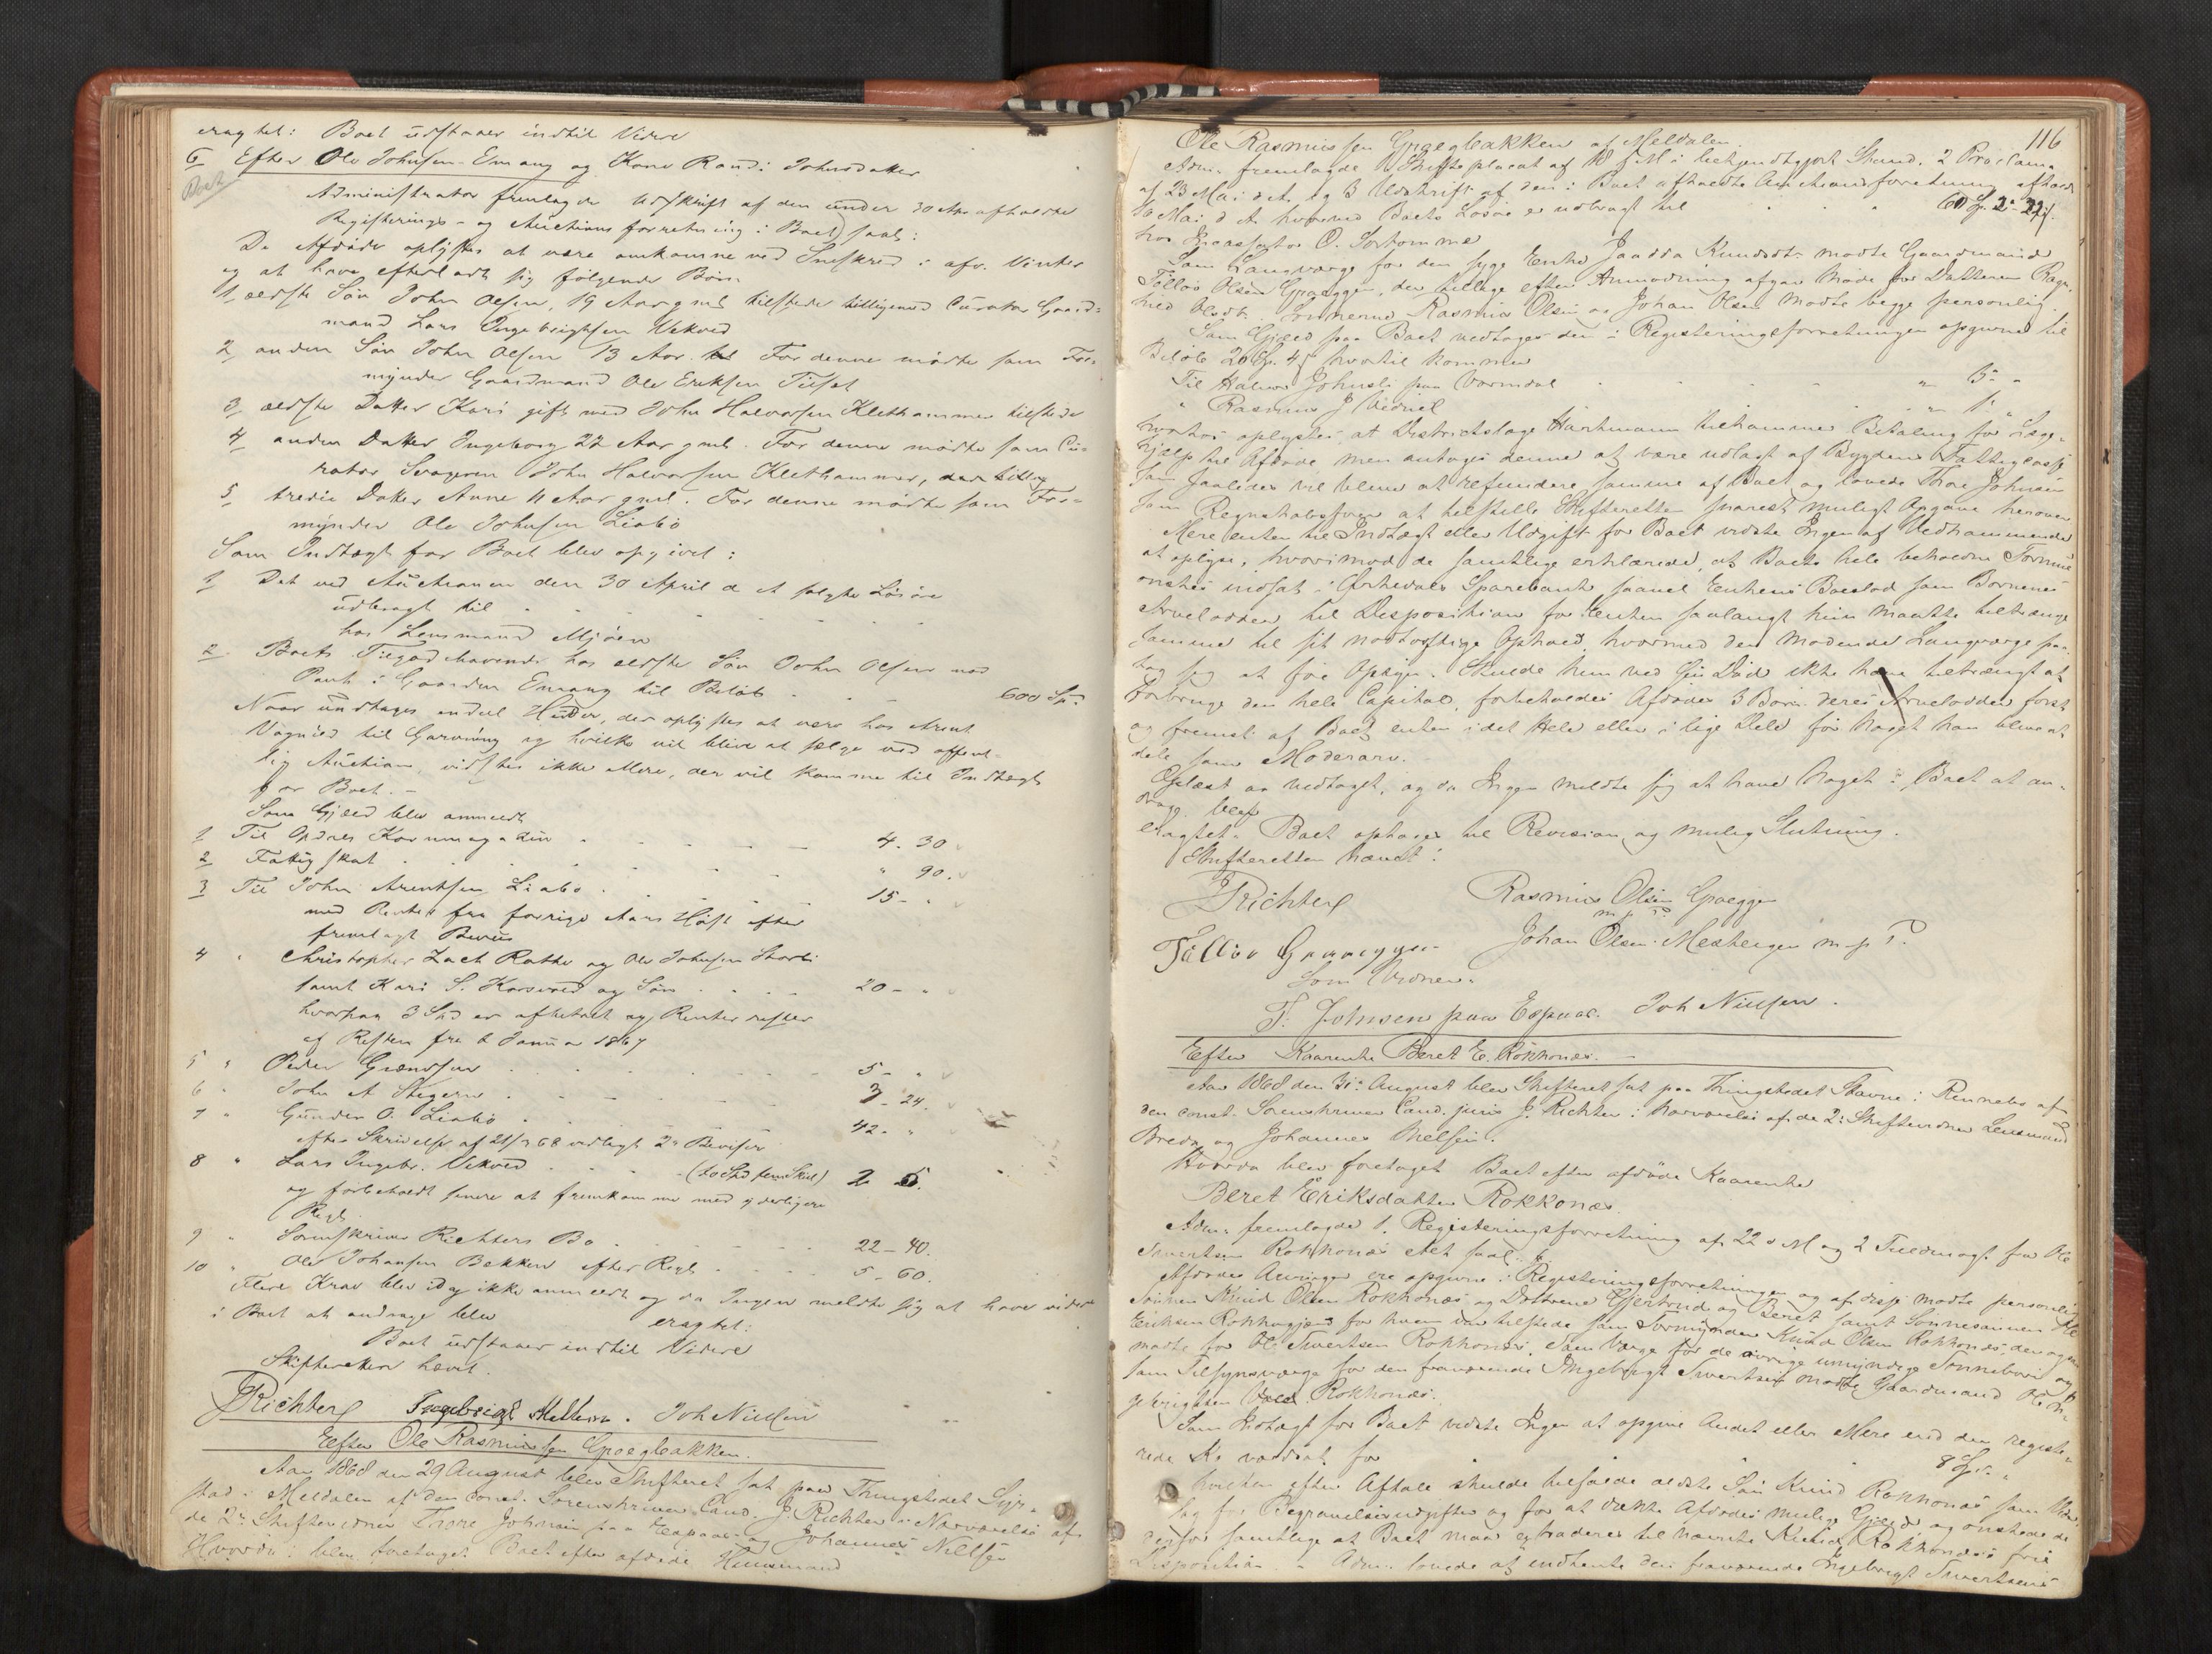 eragtet: Boet udstaaer indtil Videre
6 Efter Ole Johnsen Emaug og Kone Randi Johnsdatter
Boet
Administrator fremlagde Udskrift af den under 30 Apr afholdte
Registerings- og Auctions forretning i Boet saal:
De Afdøde oplystes at være omkomne ved Sneskred i afv. Vinter
og at have efterladt sig følgende Børn
1 ældste Søn John Olsen, 19 Aar gml tilstede tilligemed Curator Gaard-
mand Lars Ingebrigtsen Vekved
2 anden Søn John Olsen 13 Aar. For denne mødte som For-
mynder Gaardmand Ole Eriksen
3 ældste Datter Kari gift med John Halvorsen Klethammer tilstede
4 anden Datter Ingeborg 22 Aar gml. For denne mødte som Cu-
rator Svogeren John Halvorsen Klethammer,
5 tredie Datter Anne 11 Aar gml. For denne mødte som For-
mynder Ole Johnsen Liabø
Som Indtægt for Boet blev opgivet:
1 Det ved Auctionen den 30 April d A solgte Løsøre
udbragt til
hos Lensmand Mjøen
2. Boets Tilgodehavende hos ældste Søn John Olsen mod
Pant i Gaarden Emaug til Beløb 600 Spd
Naar undtages endeel Huder, der oplystes at være hos Arent
Vognild til Garvning og hvilke vil blive at sælge ved offent-
lig Auction, vidstes ikke Mere, der vil komme til Indtægt
for Boet.-
Som Gjæld blev anmeldt
1 Til Opdals Kornmagazin 4. 30
2 Fattigskat " 90.
3 Til John Arentsen Liabø 15- "
med Renter fra forrige Aars Høst efter
fremlagt Beviis
4 " Christopher Zach Rothe og Ole Johnsen Storli
samt Kari S. Horsvold og Søn 20- "
hvorpaa 3 Spd er afbetalt og Renter
af Resten fra 1 Januar 1867
5 " Peder Grændsen 5- "
6 " John A Stegern 3- 24.
7 " Gunder O. Liabø 42- "
efter Skrivelse af 21/7 68 vedlagt 2 Beviser
8 " Lars Ingebr. Vekved (to Spd fem Skil) 2 5.
og forbeholdt senere at fremkomme med yderligere
Regl.
9 " Sorenskriver Richters Bo 22- 40.
10 " Ole Johansen Bekken efter Regl 5- 60.
Flere Krav blev idag ikke anmeldt og da Ingen meldte sig at have videre
i Boet at andrage blev
eragtet:
Boet udstaaer indtil Videre
Skifteretten hævet.
JRichter Ingebrigt Mellem. Joh Nielsen
Efter Ole Rasmussen Gpaegbakken.
Aar 1868 den 29 August blev Skifteret sat paa Thingstedet Syr-
stad i Meldalen af den const. Sorenskriver Cand. J. Richter i Nærværelse af
de 2 Skiftevidner Thore Johnsen paa Espaas og Johannes Nielsen
Hvorda blev foretaget Boet efter afdøde Huusmand
116
Ole Rasmussen Gpaegbakken af Meldalen
Adm. fremlagde 1 Skifteplacat af 18 f M i bekjendtgjort Stand. 2 Proclama
af 23 Mai d A. og 3 Udskrift af den i Boet afholdte Auctionsforretning afholdt
16 Mai d A hvorved Boets Løsøre er udbragt til 60 Sp. 2 22
hos Incassator O. Sortomme
Som Laugværge for den syge Enke Jaadda Knudsdt mødte Gaardmand
Tollov Olsen Graeggen, der tillige efter Anmodning afgav Møde for Datteren Ragn-
hild Olsdt. Sønnerne Rasmus Olsen og Johan Olsen mødte begge personlig.
Som Gjæld paa Boet vedtoges den i Registeringsforretningen opgivne til
Beløb 20 Sp. 45 hvortil kommer
Til Halvor Johnsli paa Værmdal " 3- "
" Rasmus J " 1-
hvorhos oplystes, at Districtslæge Harhmann tilkommer Betaling for Læge-
hjælp til Afdøde, men antages denne at være udlagt af Bygdens Fattigcasse
som saaledes vil blive at refundere samme af Boet og lovede Thore Johnsen
som Regnskabsfører at tilstille Skifteretten snarest muligt Opgave herover
Mere enten til Indtægt eller Udgift for Boet vidste Ingen af Vedkommende
at oplyse, hvorimod de samtlige erklærede, at Boets hele beholdne Formue
ønskes indsat i Orkedals Sparebank saavel Enkens Boeslod som Børnenes
Arvelodder til Disposition for Enken saalangt hun maatte tiltrænge
samme til sit nødtørftige Ophold, hvormed den mødende Laugværge paa-
tog sig at føre Opsyn. Skulde hun ved sin Død ikke have tiltrængt at
forbruge den hele Capital, forbeholdes Afdødes 3 Børn deres Arvelodder først
og fremst af Boet enten i det Hele eller i lige Dele før Noget kan blive at
dele som Moderarv.
Oplæst og vedtaget, og da Ingen meldte sig at have Noget i Boet at an-
drage blev
eragtet: Boet optages til Revision og mulig Slutning.
Skifteretten hævet:
JRichter Rasmus Olsen Graeggen
m p P
Tollov Graeggen Johan Olsen Mealbergen m. p. P.
Som Vidner:
T. Johnsen paa Espaas. Joh Nielsen.
Efter Kaarenke Beret E. Rokkones.-
Aar 1868 den 31 August blev Skifteret sat paa Thingstedet Stavne i Rennebo af
den const. Sorenskriver Cand. juris J. Richter i Nærværelse af de 2 Skiftevidner Lensmand
Breda og Johannes Nielsen.
Hvorda blev foretaget Boet efter afdøde Kaarenke
Beret Eriksdatter Rokkones.
Adm. fremlagde 1. Registeringsforretning af 22 d M og 2 Fuldmagt fra Ole
Sivertsen Rokkones Alt saal.
Afdødes Arvinger ere opgivne i Registeringsforretningen og af disse mødte personlig
Sønnen Knud Olsen Rokkones og Døttrene Gjertrud og Beret samt Sønnesønnen Ole
Eriksen Rokkones for hvem var tilstede som Formynder Knud Olsen Rokkones, der ogsaa
mødte for Ole Sivertsen Rokkones. Som Værge for de øvrige umyndige Sønnebørn og
som Tilsynsværge for den fraværende Ingebrigt Sivertsen mødte Gaardmand Ole In-
gebrigtsen Rokkones.
Som Indtægt for Boet vidste Ingen at opgive Andet eller Mere end den registe-
rede Ko vurderet for 8 Sp. "
hvilken efter Aftale skulde tilfalde ældste Søn Knud Rokkones som Veder-
lag for Begravelsesudgifter og for at dække Afdødes mulige Gjæld, og ønskede de
derfor samtlige at Boet maa extraderes til nævnte Knud Rokkones's frie
Disposition. - Adm. lovede at indhente den fraværende Ingebrigt Sivertsens